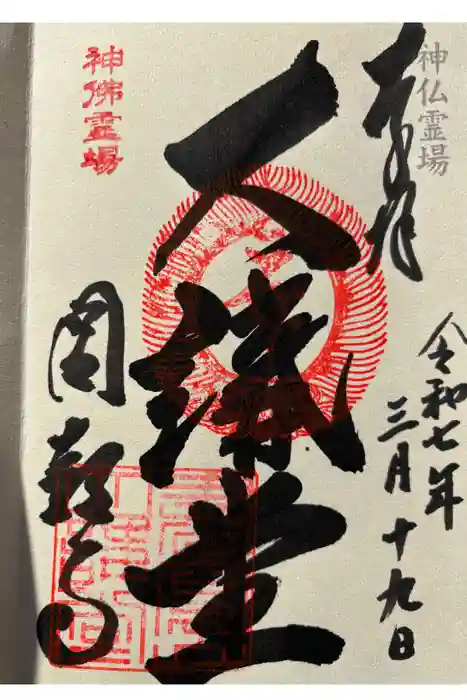 神仏霊場
奉拝
令和七年
三月十九日
大講堂
神佛霊場
圓教寺